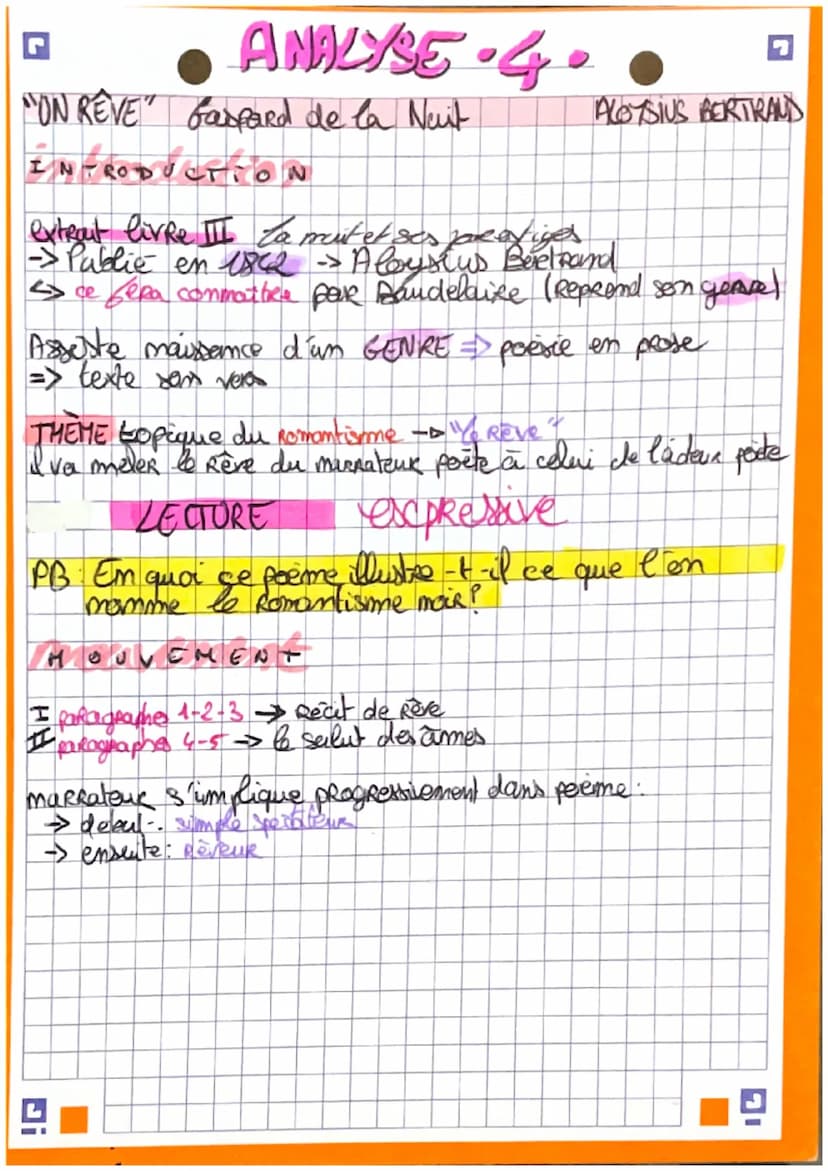 ANALYSE .4.
"ON RÊVE" Gaspard de la Nuit ALOYSIUS BERTRAND
INTRODUCTION
extrait livre III La nuit et ses prestiges
-> Publié en 1842 -> Aloysius Bertrand
↳ ce fera connaître par Baudelaire (reprend son genre)
Assiste naissance d'un GENRE => poésie en prose
=> texte sans vers
THÈME topique du Romantisme -> "le Rêve"
il va mêler le Rêve du narrateur poète à celui de l'acteur poète
LECTURE expressive
PB : En quoi ce poème illustre-t-il ce que l'on
nomme le Romantisme noir ?
MOUVEMENT
I paragraphes 1-2-3 -> Récit de Rêve
II paragraphes 4-5 -> le salut des âmes
narrateur s'implique progressivement dans poème :
-> début : simple spectateur
-> ensuite : Rêveur